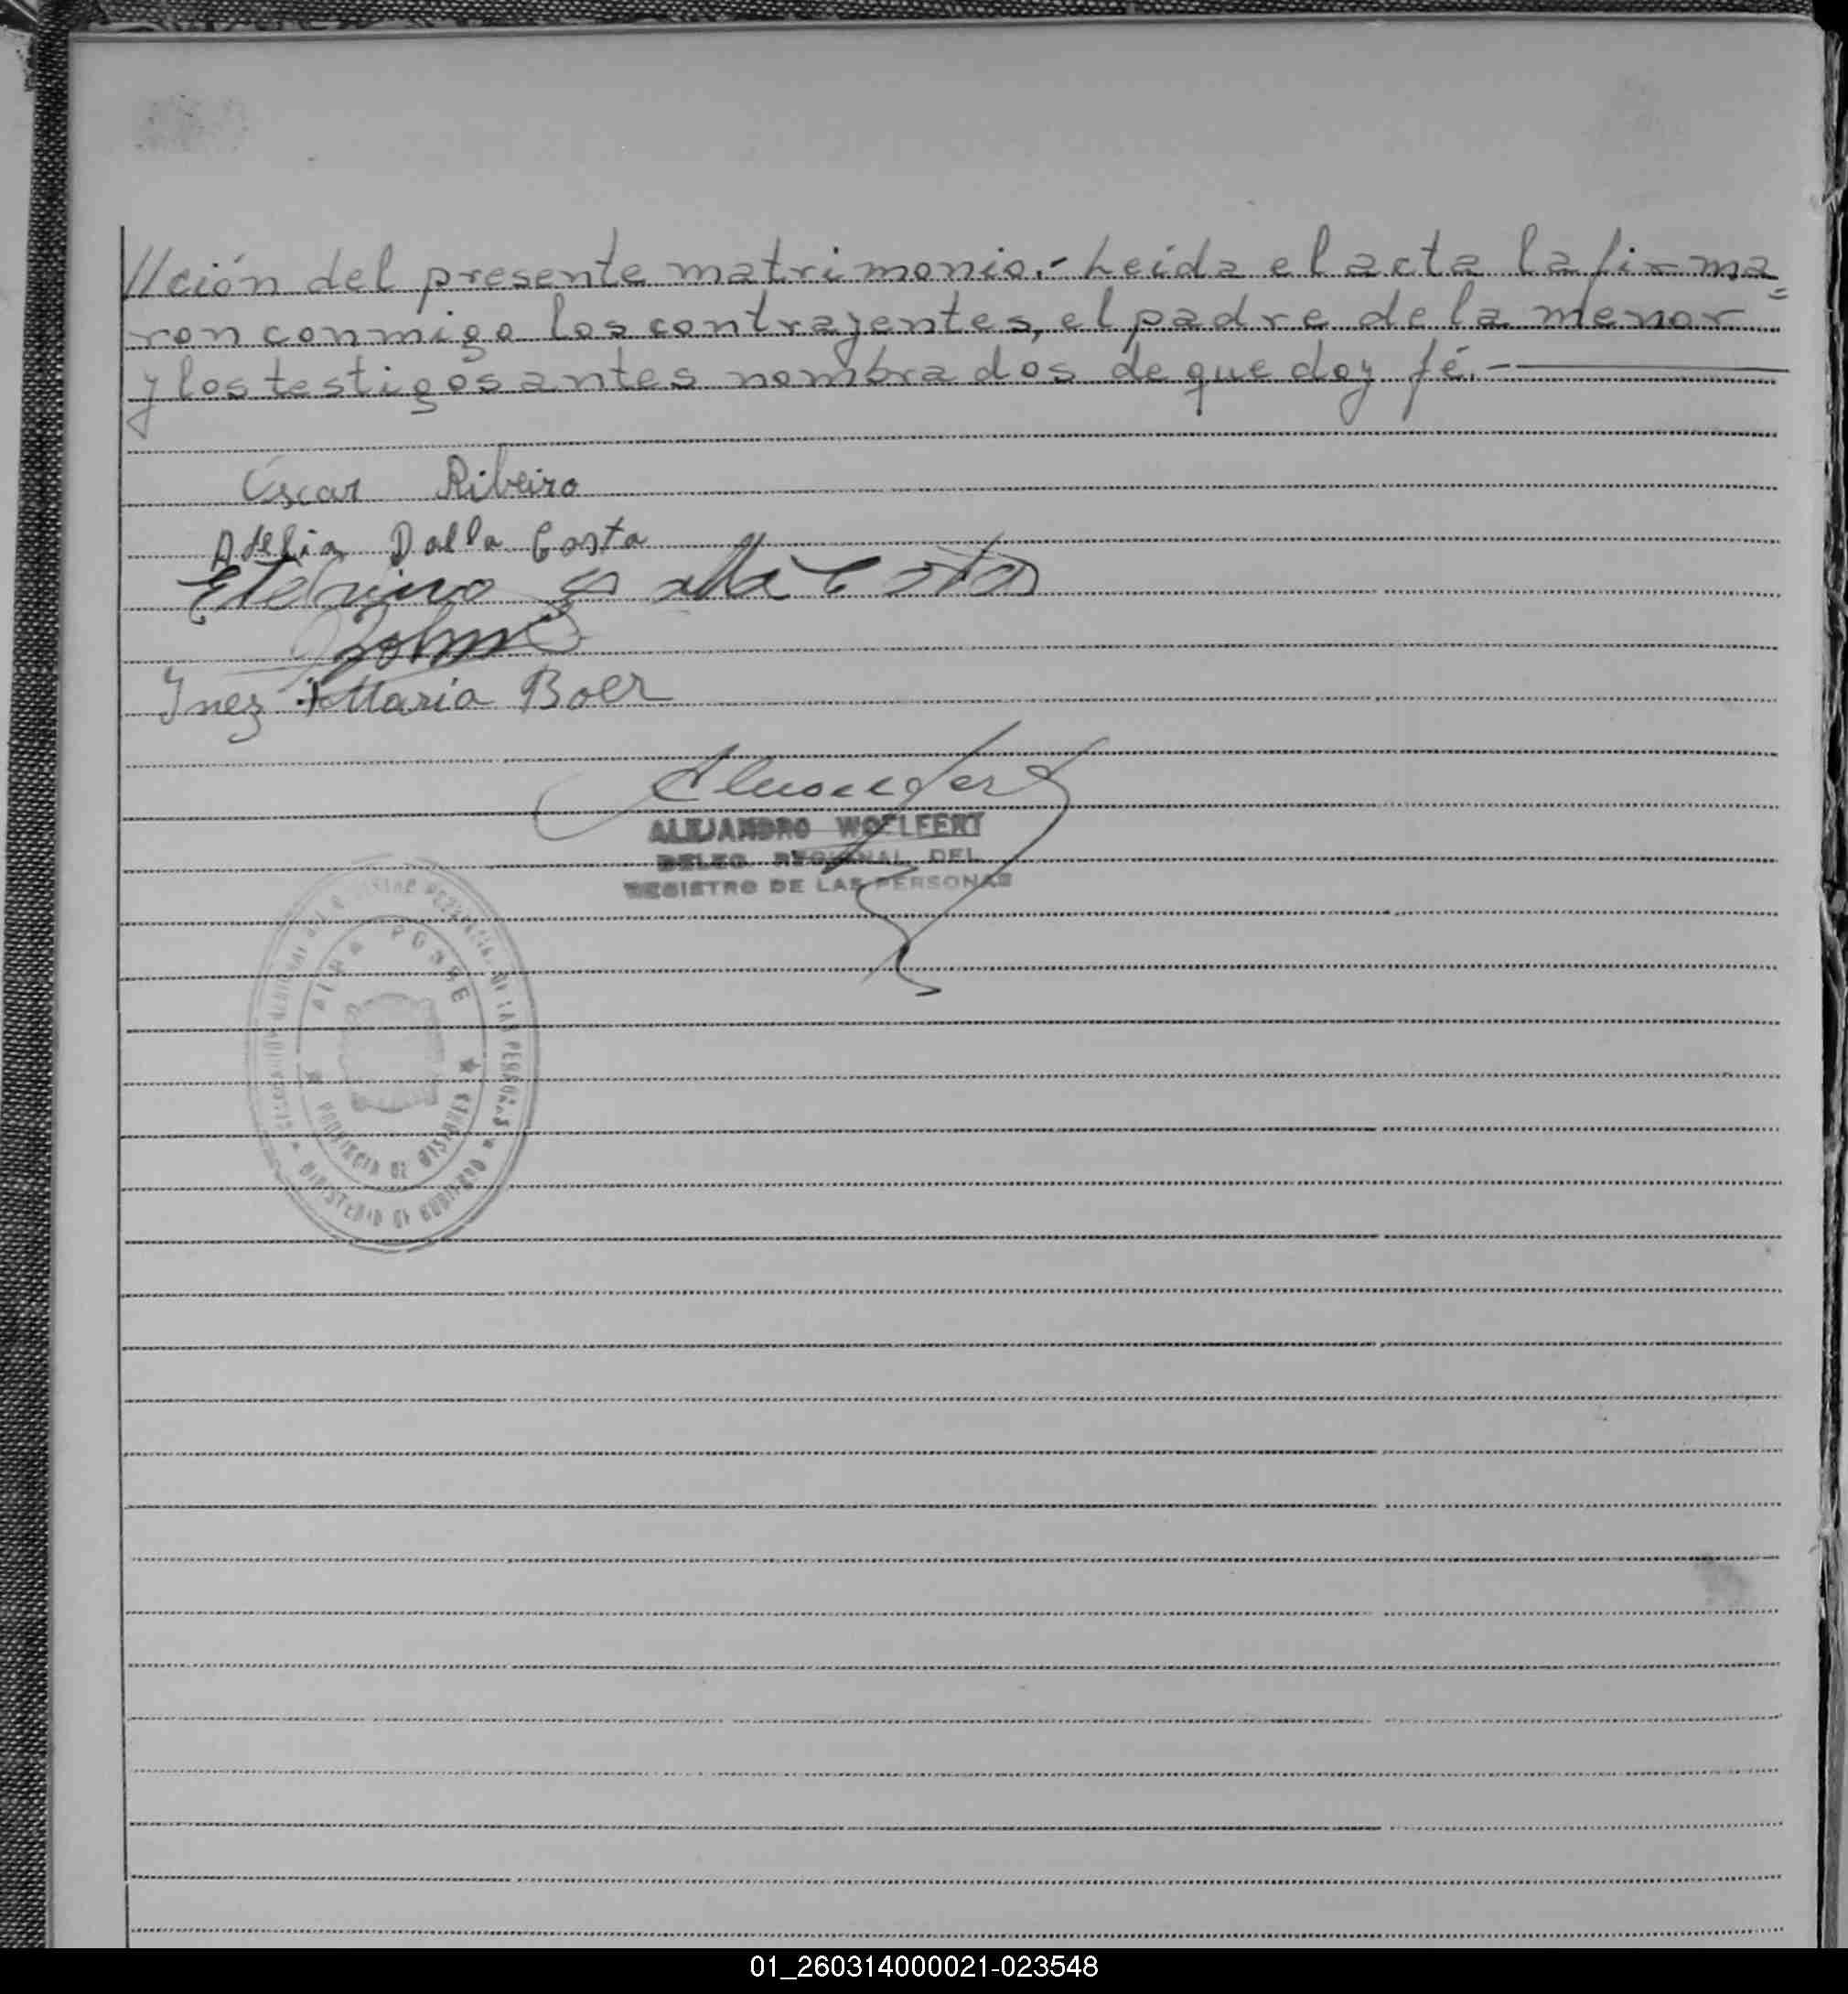 //ción del presente matrimonio.- Leída el acta la firma=
ron conmigo los contrayentes, el padre de la menor
y los testigos antes nombrados de que doy fé.-
Oscar Ribeiro
Adelia Dalla Costa
Etelvino Dalla Costa
Inez Maria Boer
ALEJANDRO WOELFERT
DELEG. REGIONAL DEL
REGISTRO DE LAS PERSONAS
ALBA POSSE
PROVINCIA DE MISIONES
DE LAS PERSONAS
MINISTERIO DE GOBIERNO
01_260314000021-023548